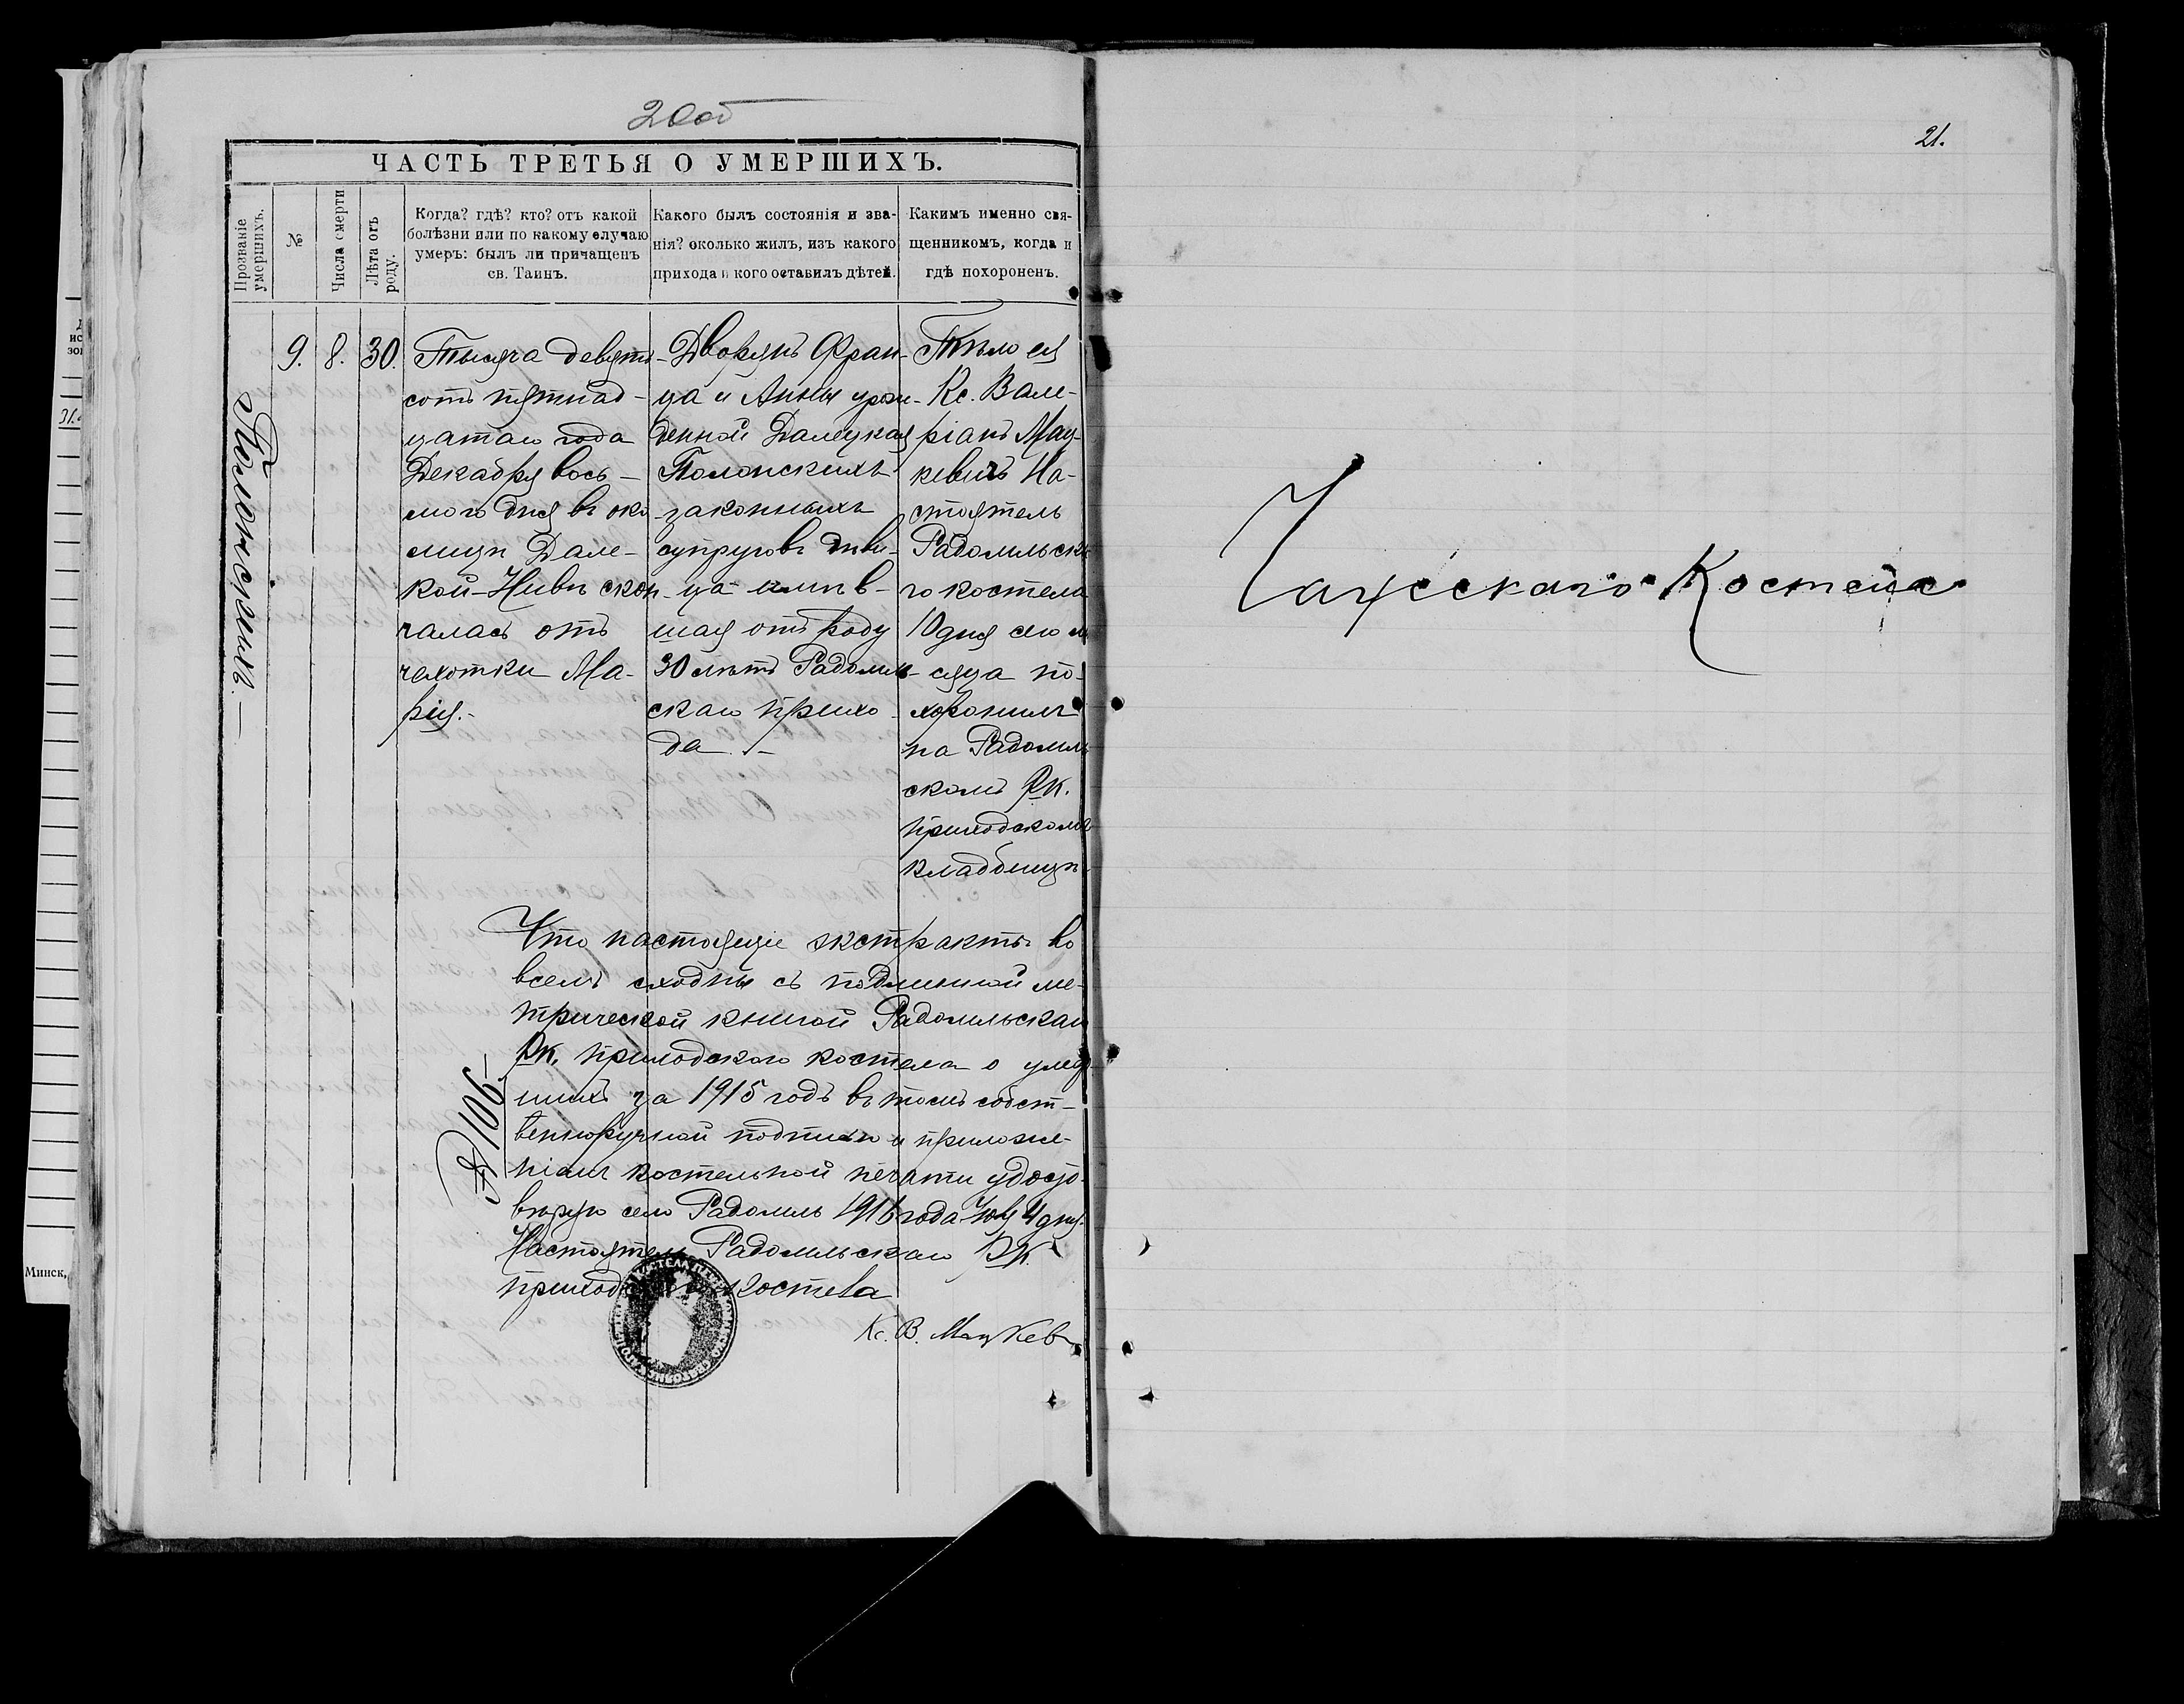 20об
ЧАСТЬ ТРЕТЬЯ О УМЕРШИХЪ.
Прозваніе умершихъ.
№
Числа смерти
Лѣта отъ роду.
Когда? гдѣ? кто? отъ какой
болѣзни или по какому случаю
умеръ: былъ ли причащенъ
св. Таинъ.
Какого былъ состоянія и зва-
нія? сколько жилъ, изъ какого
прихода и кого оставилъ дѣтей.
Какимъ именно свя-
щенникомъ, когда и
гдѣ похороненъ.
Полонскихъ.
9.
8.
30.
Тысяча девять
сотъ пятнад-
цатаго года
Декабря вось-
мого дня въ око
лицѣ Дале-
кой-Нивѣ скон
чалась отъ
чахотки Ма-
рія.-
Дворянъ Фран-
ца и Анны урож-
денной Далецкая
Полонскихъ
законныхъ
супруговъ дѣви-
ца имѣв-
шая отъ роду
30 лѣтъ Радомль-
скаго прихо-
да.-
Тѣло ея
Кс. Вале-
ріанъ Мац-
кевичъ На-
стоятель
Радомльска
го костела
10 дня сего м
сяца по-
хоронилъ
на Радомль
скомъ Рк.
приходскомъ
кладбищѣ
Что настоящіе экстракты во
всемъ сходны съ подлинной ме-
трической книгой Радомльскаго
Рк. приходского костела о умер
шихъ за 1915 годъ въ томъ собст-
венноручной подписью и приложе-
ніемъ костельной печати удосто-
вѣряю село Радомль 1916 года 4 дня.
Настоятель Радомльскаго Рк.
костела
Кс. В. Мацкевич
№ 106
Минск,
21.
Чаусскаго Костела